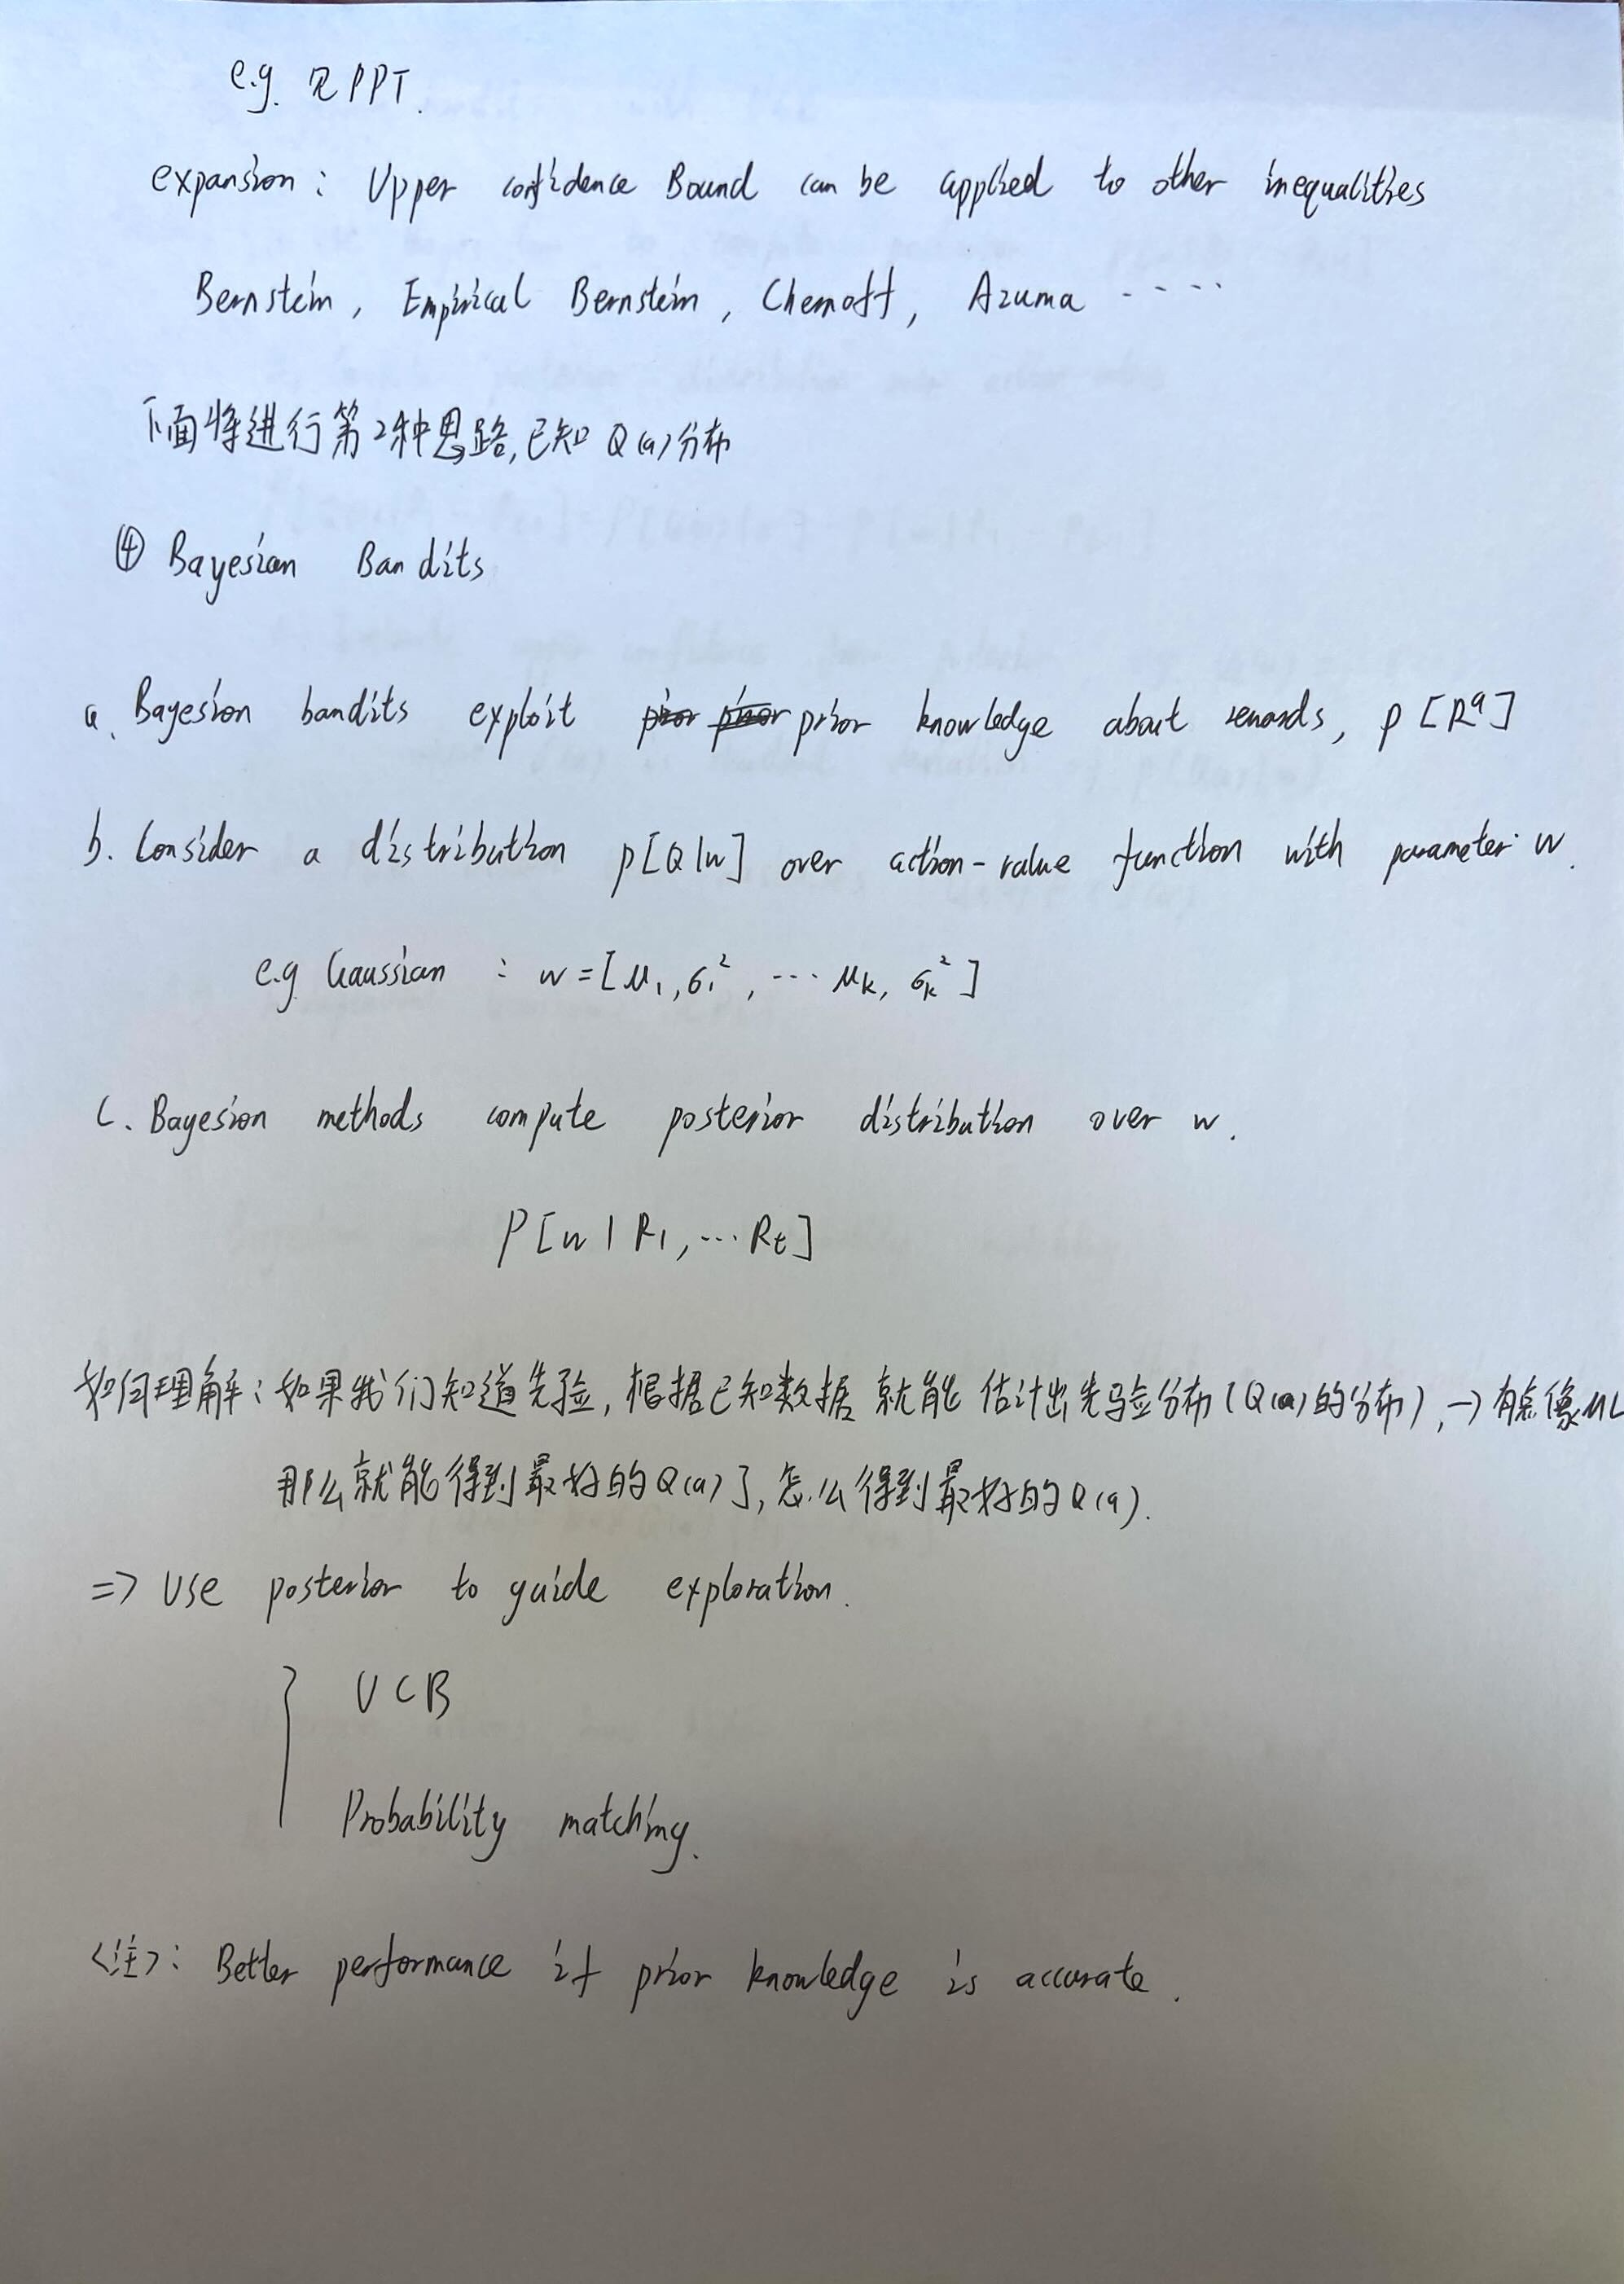 e.g. 见PPT.
expansion: Upper confidence Bound can be applied to other inequalities
Bernstein, Empirical Bernstein, Chernoff, Azuma ....
下面将进行第2种思路,已知Q(a)分布
④ Bayesian Bandits
a. Bayesion bandits exploit prior prior prior knowledge about rewards, p[Rᵃ]
b. Consider a distribution p[Q|w] over action-value function with parameter w.
e.g Gaussian : w=[μ₁,σ₁², ... μₖ, σₖ²]
C. Bayesion methods compute posterior distribution over w.
P[w|R₁,...Rₜ]
如何理解:如果我们知道先验,根据已知数据就能估计出先验分布(Q(a)的分布),→有点像ML
那么就能得到最好的Q(a)了,怎么得到最好的Q(a).
=> Use posterior to guide exploration.
UCB
Probability matching.
<注>: Better performance if prior knowledge is accurate.